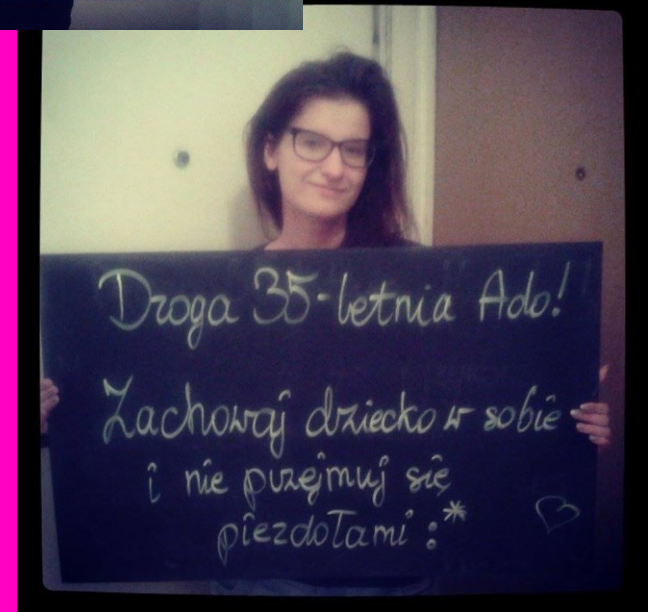 Droga 35-letnia Ado!
Zachowaj dziecko w sobie
i nie przejmuj się
pierdołami :*